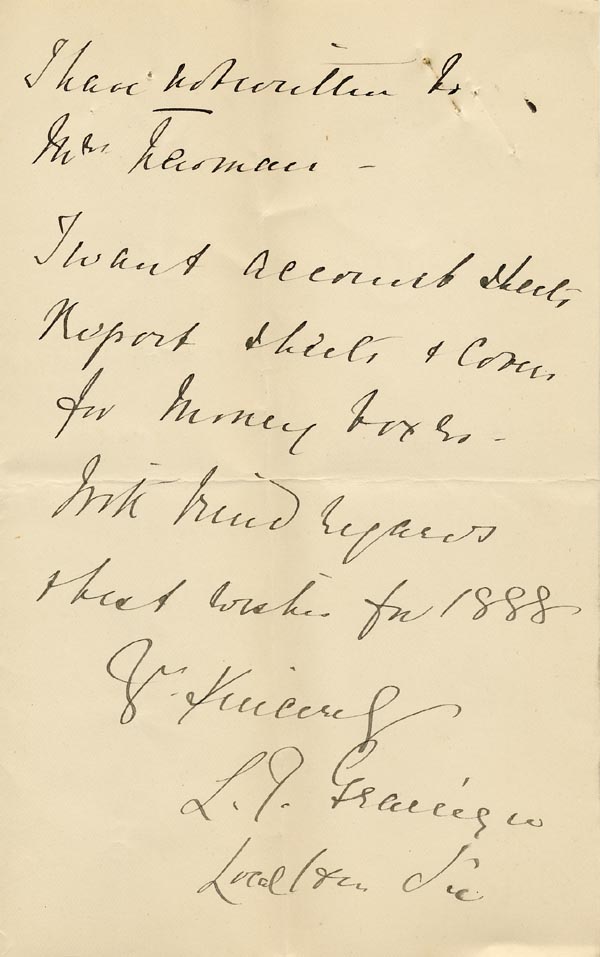 I have not written to
Mrs Fearman –
I want account sheets
Report sheets & Covers
for Money boxes –
With kind regards
& best wishes for 1888
Yrs. Sincerely
L. J. Grainger
Local Hon Sec